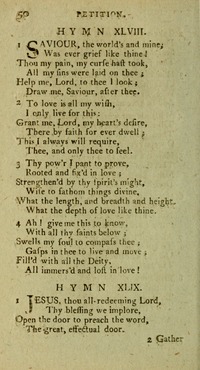 50 PETITION.
HYMN XLVIII.
1 SAVIOUR, the world's and mine,
Was ever grief like thine!
Thou my pain, my curſe haſt took,
All my ſins were laid on thee;
Help me, Lord, to thee I look;
Draw me, Saviour, after thee.
2 To love is all my wiſh,
I only live for this:
Grant me, Lord, my heart's deſire,
There by faith for ever dwell;
This I always will require,
Thee, and only thee to feel.
3 Thy pow'r I pant to prove,
Rooted and fix'd in love;
Strengthen'd by thy ſpirit's might,
Wiſe to fathom things divine,
What the length, and breadth and height,
What the depth of love like thine.
4 Ah! give me this to know,
With all thy ſaints below;
Swells my ſoul to compaſs thee;
Gaſps in thee to live and move;
Fill'd with all the Deity,
All immers'd and loſt in love!
HYMN XLIX.
1 JESUS, thou all-redeeming Lord,
Thy bleſſing we implore,
Open the door to preach the word,
The great, effectual door.
2 Gather